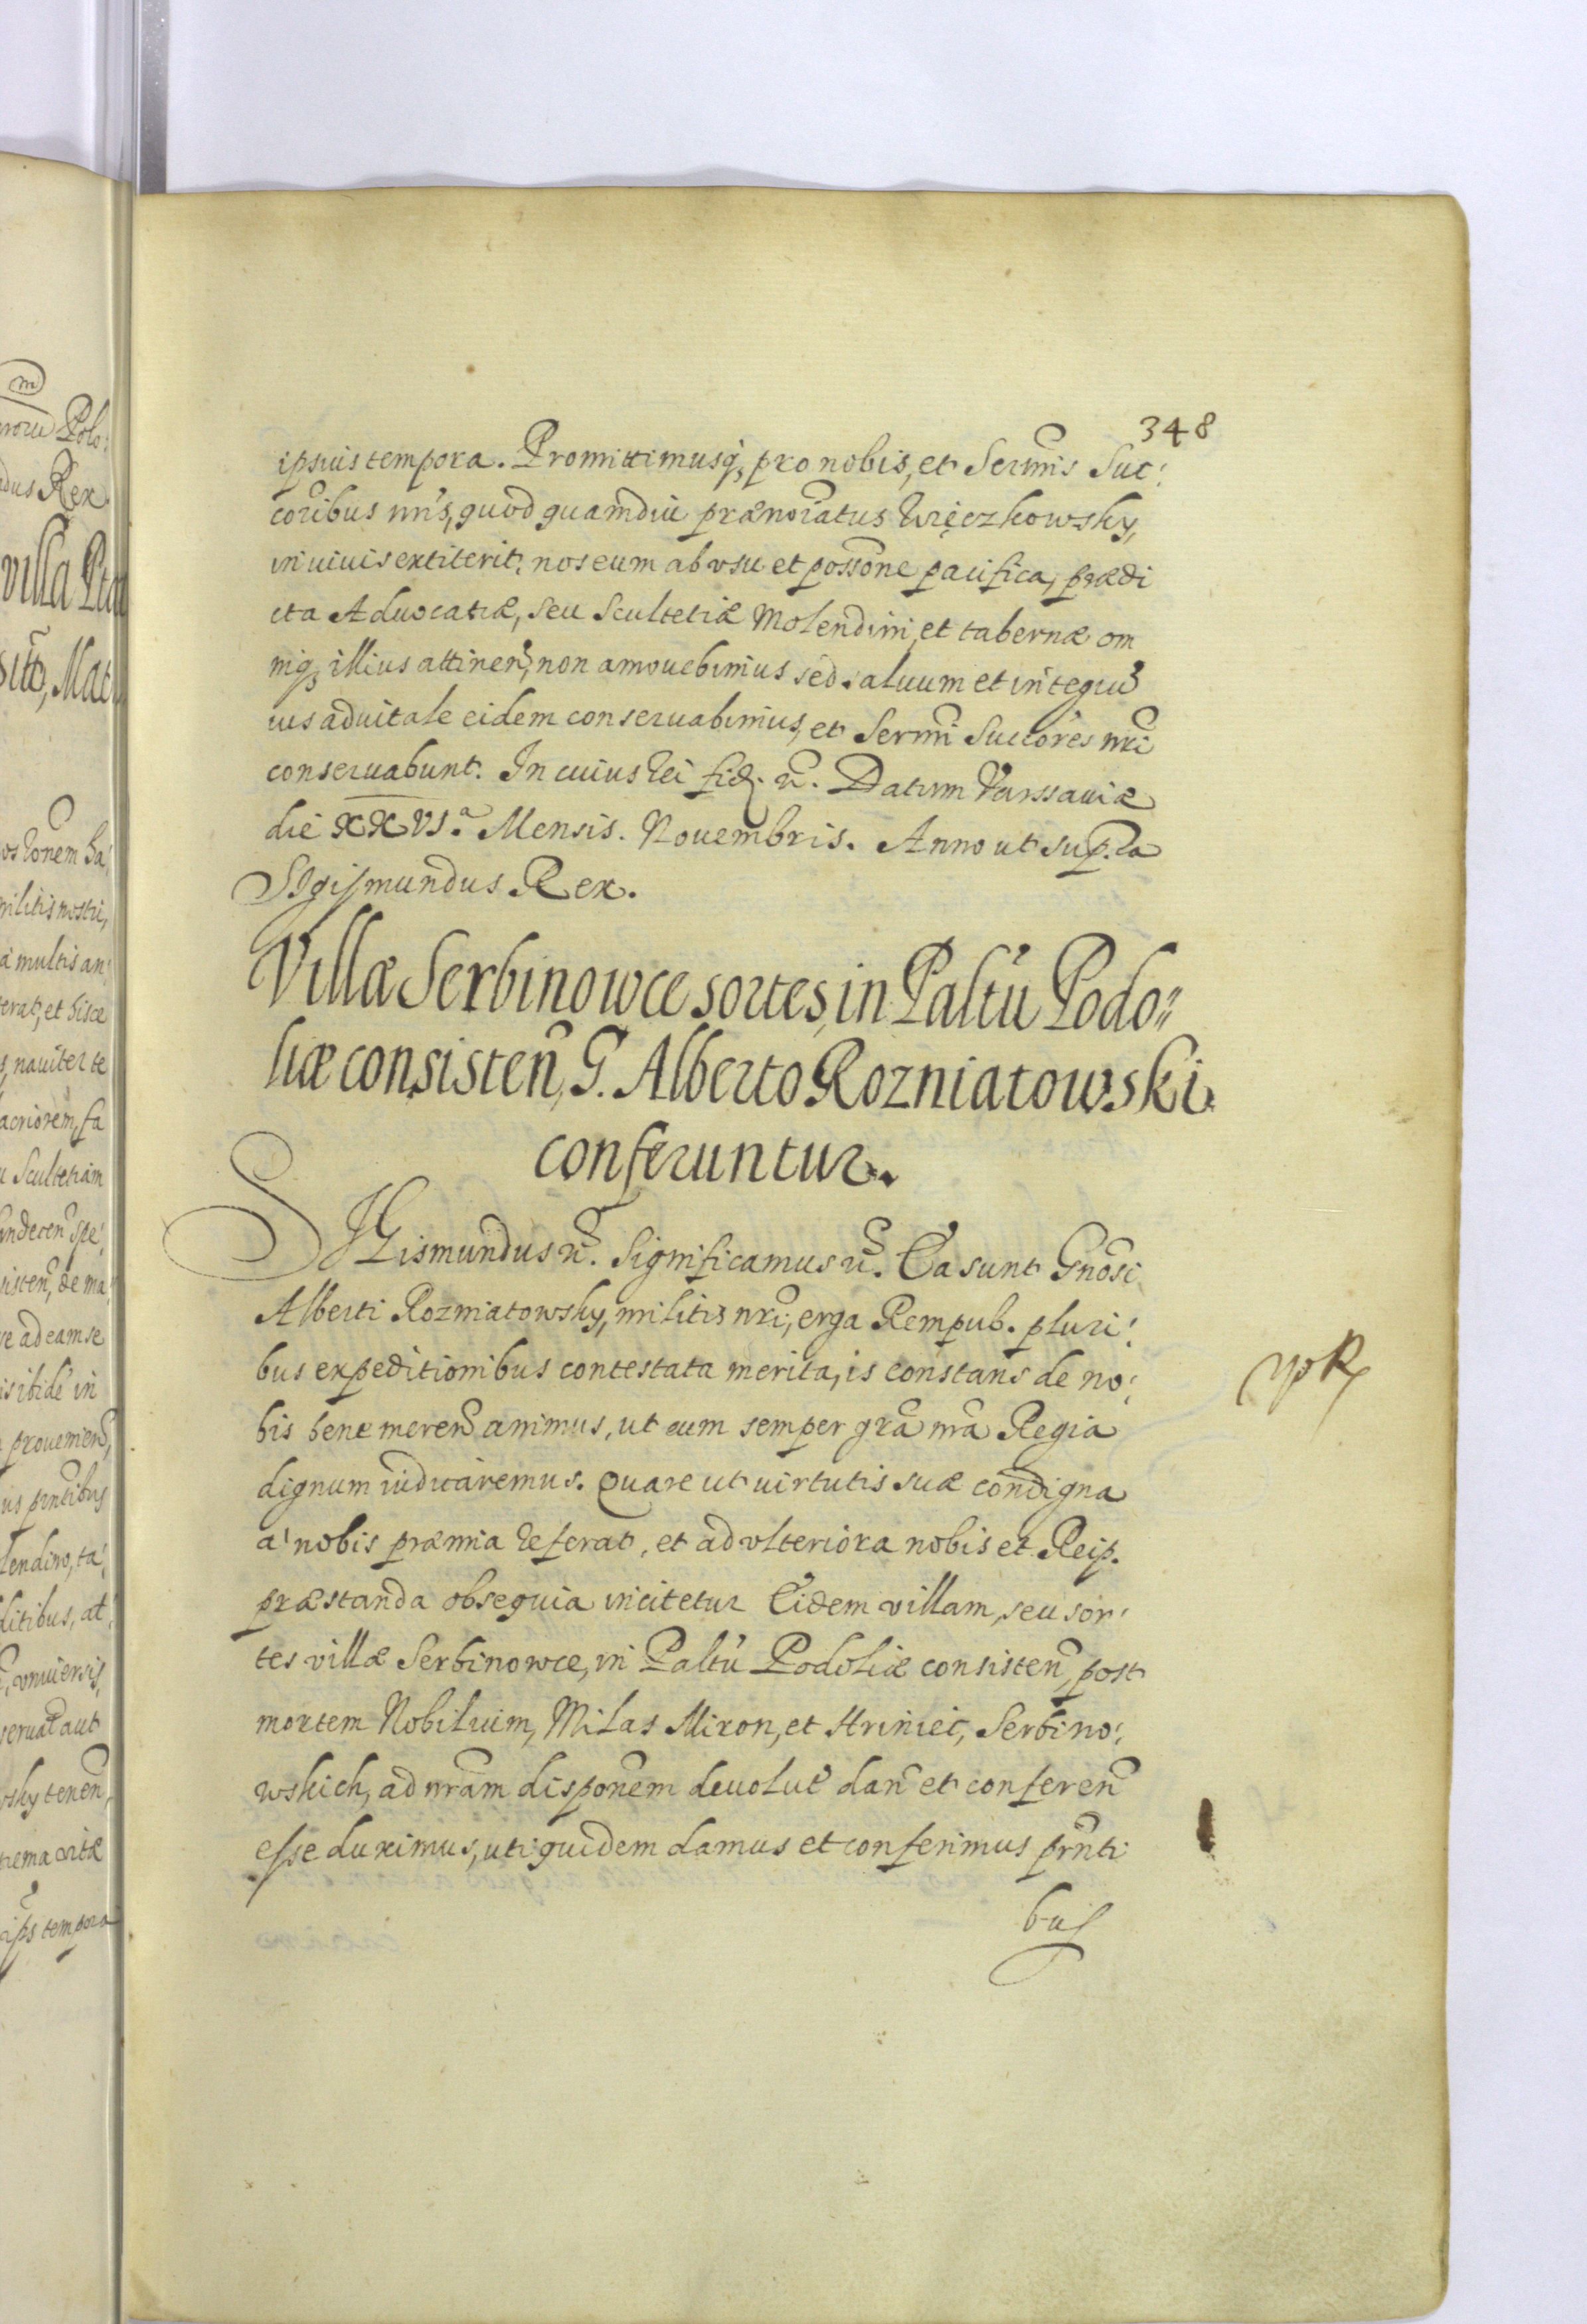 348
ipsius tempora. Promittimusq́₃ pro nobis, et Sermis Suc:
coribus nris, quod quamdiu prænoiatus Więczkowsky,
in uiuis extiterit, nos eum ab vsu et possone pacifica, prædi
cta Aduocatiæ, seu Scultetiæ Molendini, et tabernæ om
niq₃ illius attinen, non amouebimus sed saluum et integru
ius aduitale eidem conseruabimus, et Sermi Succores nri
conseruabunt. In cuius rei fid. &c. Datum Varssauiæ
die XXVI.ª Mensis. Nouembris. Anno ut supra
SIgismundus Rex.
Villæ Serbinowce sortes, in Paltu Podo"
liæ consisten, G. Alberto Rozniatowski
conferuntur.
SIGismundus &c. Significamus &c. Ea sunt Gnosi
Alberti Rozniatowsky, militis nri, erga Rempub. pluri:
bus expeditionibus contestata merita, is constans de no:
bis bene meren animus, ut eum semper gra nra Regia
dignum iudicaremus. Quare ut uirtutis suæ condigna
a' nobis præmia referat, et ad vlteriora nobis et Reip.
præstanda obsequia incitetur Eidem villam, seu sor:
tes villæ Serbinowce, in Paltu Podoliæ consisten, post
mortem Nobilium, Milas Miron, et Hriniec, Serbino:
wskich, ad nram disponem deuolut dan et conferen
esse duximus, uti quidem damus et conferimus prnti
bus